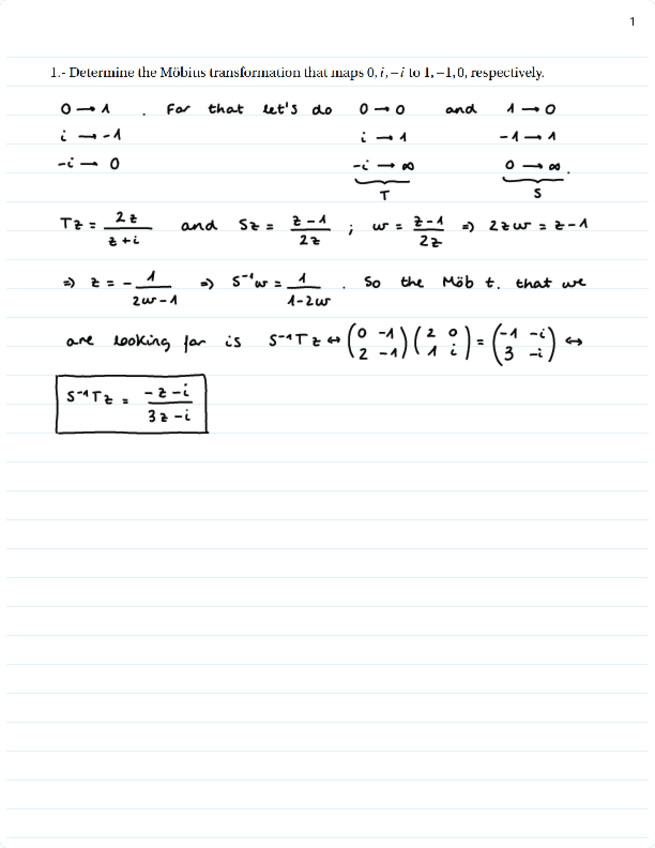 1
1.- Determine the Möbius transformation that maps 0, i, −i to 1, −1, 0, respectively.
0 → 1 . For that let's do 0 → 0 and 1 → 0
i → -1 i → 1 -1 → 1
-i → 0 -i → ∞ 0 → ∞ .
T S
Tz = 2z/(z+i) and Sz = (z-1)/(2z) ; w = (z-1)/(2z) ⇒ 2zw = z-1
⇒ z = - 1/(2w-1) ⇒ S⁻¹w = 1/(1-2w) . So the Möb t. that we
are looking for is S⁻¹Tz ↔ (0 -1; 2 -1)(2 0; 1 i) = (-1 -i; 3 -i) ↔
S⁻¹Tz = (-z-i)/(3z-i)